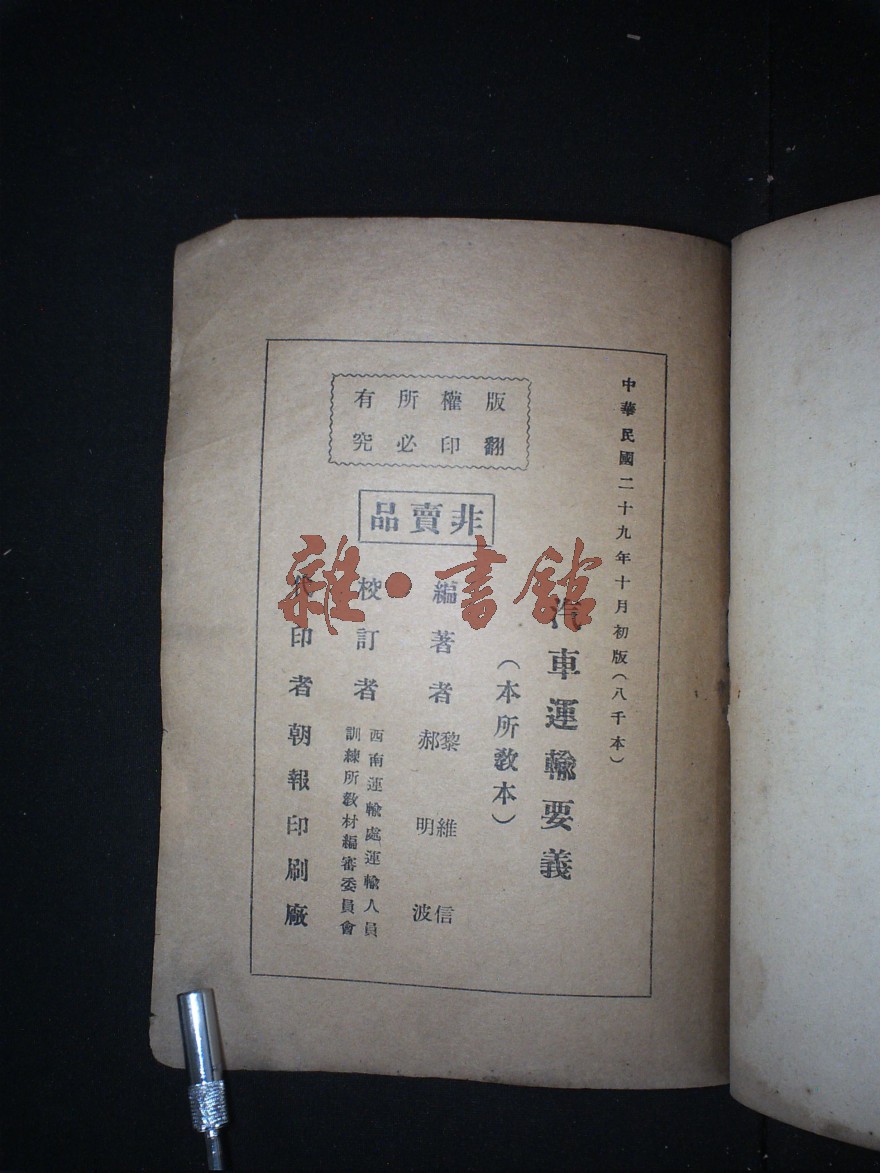 中華民國二十九年十月初版（八千本）
汽車運輸要義
（本所教本）
版權所有
翻印必究
非賣品
編著者
黎維信
郝明波
校訂者
西南運輸處運輸人員
訓練所教材編審委員會
代印者朝報印刷廠
雜·書館